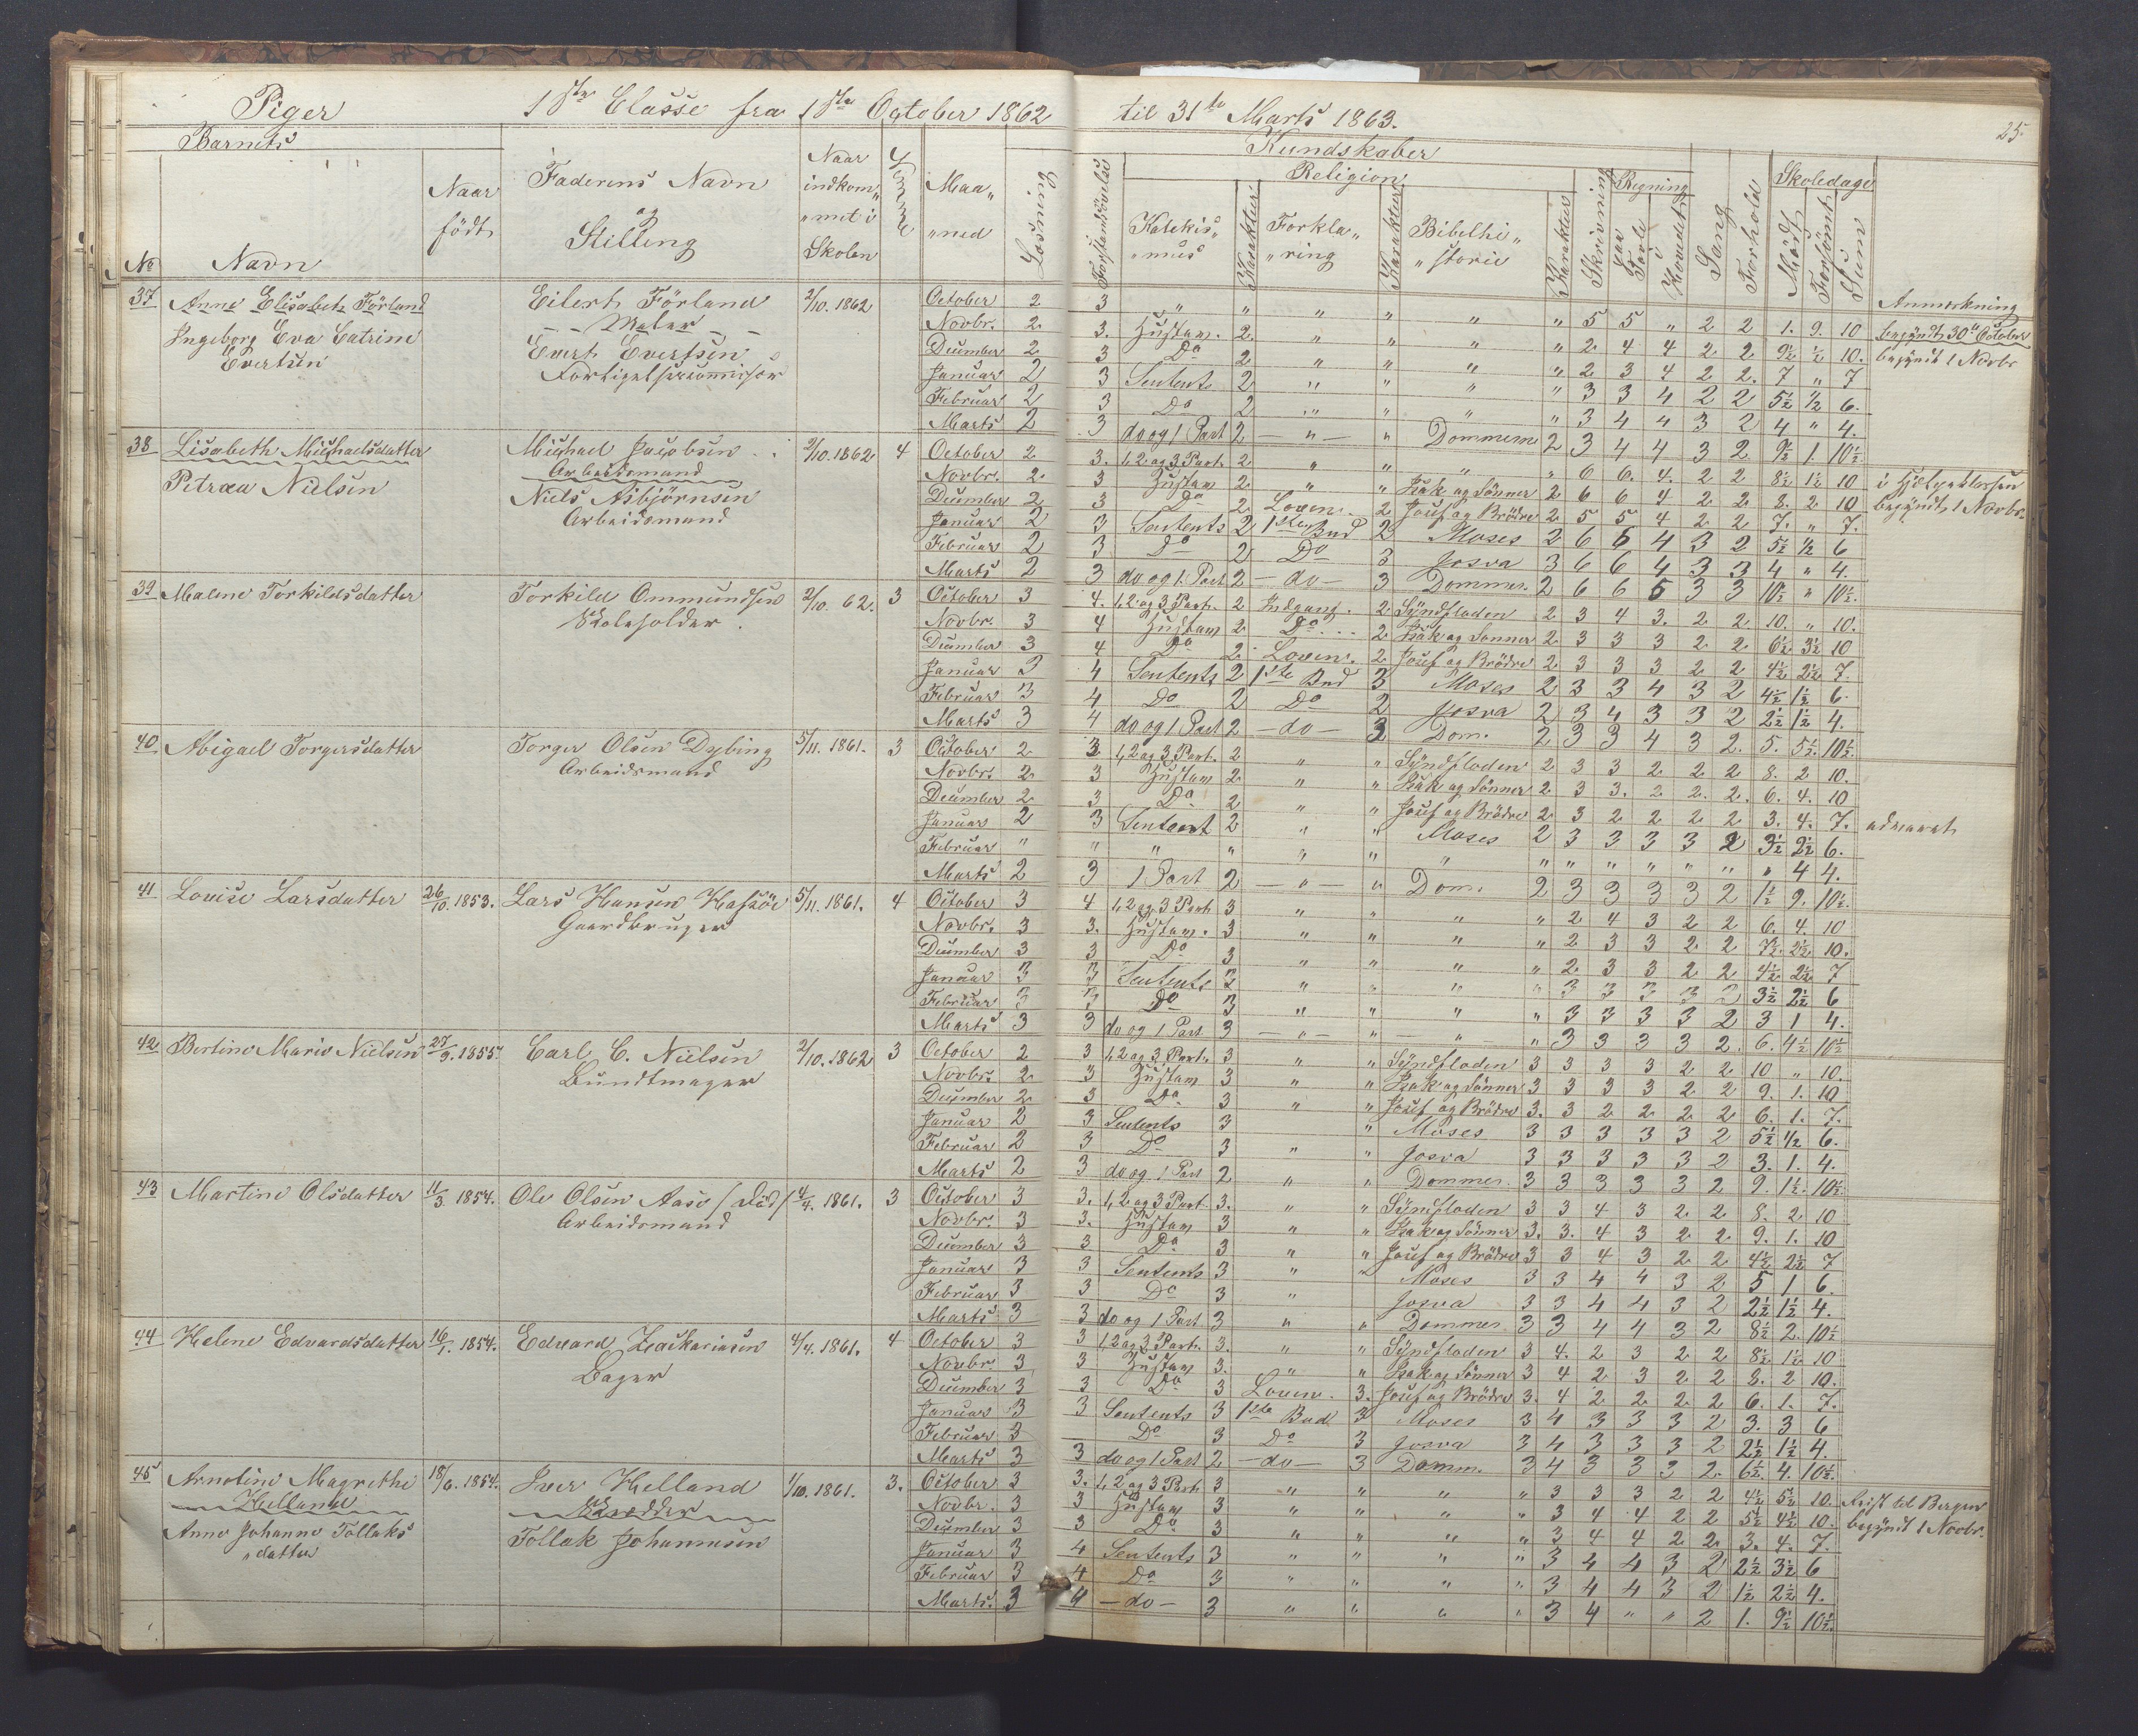 Piger 1ste Classe fra 1ste October 1862 til 31te Marts 1863.
25
Barnets Kundskaber
Religion Regning Skoledage
No Navn Naar födt Faderens Navn og Stilling Naar indkom„ „met i Skolen Evne Maa„ „ned Læsning Forstandsövelse Katekis„ „mus Karakter Forkla„ „ring Karakter Bibelhi„ „storie Karakter Skrivning paa Tavle i Hovedet Sang Forhold Mödt Forsömt Sum Anmærkning
37 Anne Elisabeth Förland Eilert Förland 2/10. 1862 October 2 3 " " " " " " 5 5 " 2 2 1. 9. 10 begyndt 30te October
Ingeborg Eva Catrine Maler Novbr. 2. 3. 2. " " " " 2 4 4 2 2 9½ ½ 10. begyndt 1 Novbr
Evertsen Evert Evertsen December 2 3 Do 2 " " " " 2 3 4 2 2. 7 " 7
Januar 2 3 Sentents 2 " " " " 3 3 4 2 2 5½ ½ 6.
Februar 2 3 Do 2 " " " " 3 4 4 3 2 4 " 4.
Marts 2 3 do og 1 Part 2 — " — " Dommerne 2 3 4 4 3 2 9½ 1 10½
38 Lisabeth Michaelsdatter Michael Jacobsen 2/10. 1862 4 October 2 3. 1, 2 og 3 Part. 2 " " " " 6 6. 4. 2 2 8½ 1½ 10 i Hjelpeklassen
Petrea Nielsen Arbeidsmand Novbr. 2. 3 2 " " Isak og Sönner 2 6 6 4 2 2 8. 2 10 begyndt 1 Novbr.
Niels Asbjörnsen December 2 3 Do 2 Loven. 2 Josef og Brödre 2 5 5 4 2 2 7. " 7.
Arbeidsmand Januar 2 3 Sentents 2 1ste Bud 2 Moses 2 6 6 4 3 2 5½ ½ 6
Februar 2 3 Do 2 Do 3 Josva 3 6 6 4 3 3 4 " 4.
Marts 2 3 do og 1. Part 2 — do — 3 Dommer. 2 6 6 5 3 3 10½ " 10½.
39 Malene Torkildsdatter Torkild Ommundsen 2/10. 62. 3 October 3 4. 1, 2 og 3 Part. 2 Indgang. 2. Syndfloden 2 3 4 3. 2 2 10. " 10.
Skoleholder. Novbr. 3 4 2 Do 2 Isak og Sönner 2 3 3 3 2 2 6½ 3½ 10
December 3 4 Do 2 Loven. 2 Josef og Brödre 2 3 3 3 2 2 4½ 2½ 7.
Januar 3 4 Sentents 2 1ste Bud 3 Moses 2 3 3 4 3 2 4½ 1½ 6
Februar 3 4 Do 2 Do 2 Josva 2 3 4 3 3 2 2½ 1½ 4.
Marts 3 4 do og 1 Part 2 — do — 3 Dom. 2 3 3 4 3 2. 5. 5½ 10½
40 Abigael Torgersdatter Torger Olsen Dybing 5/11. 1861. 3 October 2. 3 1, 2 og 3 Part. 2 " " Syndfloden 2 3 3 2 2 2 8. 2 10.
Arbeidsmand Novbr. 2. 3 2 " " Isak og Sönner 2 3 3. 2 2. 2. 6. 4. 10
December 2. 3 Do 2 " " Josef og Brödre 2 3 2 2 2 2 3. 4. 7. advaret
Januar 2 3 2 " " Moses 2 3 3 3 3 2 3½ 2½ 6.
Februar " " " " " " " " " " " " " " 4 4.
Marts 2 3 1 Part 2 — " — " Dom. 2 3 3 3 3 2 1½ 9. 10½.
41 Louise Larsdatter 26/10. 1853. Lars Hansen 5/11. 1861. 4 October 3 4 1, 2 og 3 Part 3 " " " " 2 4 3 2 2 6. 4. 10
Gaardbruger Novbr. 3 3. 3 " " " " 2 3 3 2 2 7½. 2½ 10.
December 3 3 Do 3 " " " " 2 3 3 2 2 4½ 2½ 7
Januar 3 3 Sentents 3 " " " " 3 3 3 3 2 3½ 2½ 6
Februar 3 3 Do 3 " " " " 3 3 3 3 2 3 1 4.
Marts 3 3 do og 1 Part 3 — " — " " " 3 3 3 3 2. 6. 4½ 10½
42 Bertine Marie Nielsen 27/9. 1855. Carl C. Nielsen 2/10. 1862 3 October 2 3 1, 2 og 3 Part. 3 " " Syndfloden 3 3 3 3 2 2 10 " 10.
Bundtmager Novbr. 2. 3 3 " " Isak og Sönner 3 3 3 3 2 2 9. 1. 10
December 2. 3 Do 3 " " Josef og Brödre 3. 3 2 2 2 2 6. 1. 7.
Januar 2 3 Sentents 3 " Moses 3 3 3 3 3 2 5½ ½ 6.
Februar 2 3 Do 3 " " Josva 3 3 3 3 3 2 3. 1. 4.
Marts 2 3 do og 1 Part 2 " " Dommer 3 3 3 3 3 2 9. 1½. 10½
43 Martine Olsdatter 11/3 1854. Ole Olsen Aase (död) 4/4. 1861. 3 October 3 3. 1, 2 og 3 Part 3. " " Syndfloden 3 3 4 3 2 2 8. 2. 10
Arbeidsmand Novbr. 3 3. 3 " " Isak og Sönner 3. 3. 4 3 2 2 9. 1. 10
December 3 3 Do 3 " " Josef og Brödre 3 3 4 3 2 2 4½ 2½ 7
Januar 3 3 Sentents 3 " " Moses 3 3 4 4 3 2 5 1 6.
Februar 3 3 Do 3 " Josva 3 3 4 4 3 2 2½ 1½ 4.
Marts 3 3 do og 1 Part 3 " " Dommer 3 3 4 4 3 2 8½ 2. 10½
44 Helene Edvardsdatter 16/1. 1854. Edvard Zachariasen 4/4. 1861. 4 October 3 3 1, 2 og 3 Part. 3. " " Syndfloden 3 4. 2 3 2 2 8½ 1½ 10
Bager Novbr. 3 3 3. " " Isak og Sönner 3 4 2 3 2 2 8. 2 10.
December 3 3 Do 3 Loven. 3. Josef og Brödre 3. 4 2 2 2 2 6. 1. 7.
Januar 3 3 Sentents 3 1ste Bud 3 Moses 3 4 3 3 3 2 3. 3 6
Februar 3 Do 3 Do 3 Josva 3 4 3 3 3 2 2½ 1½ 4.
Marts 3 3 do og 1 Part 2 — do — 3 Domm. 3 4 3 3 3 2. 6½. 4. 10½.
45 Arnoline Magrethe 18/6. 1854. Iver Helland 1/10. 1861. 3. October 3 3. 1, 2 og 3 Part 3 " " " " 3 3 3 2 2 4½ 5½ 10. reist til Bergen
Helland Novbr. 3 3 3 " " " " 3 4 4 2 2 5½ 4½ 10. begyndt 1 Novbr.
Anne Johanne Tollaks Tollak Johannesen December 3 3 Do 3 " " " " 3 4 4 2 2. 3. 4. 7.
„datter Januar 3 4 Sentents 3 " " " " 3 4 4 3 2 2½ 3½ 6
Februar 3 4 Do 3 " " " " 3 4 4 3 2 1½ 2½ 4.
Marts. 3 4 — do — 3 " " " " 3 4 " " 2 1. 9½ 10½.